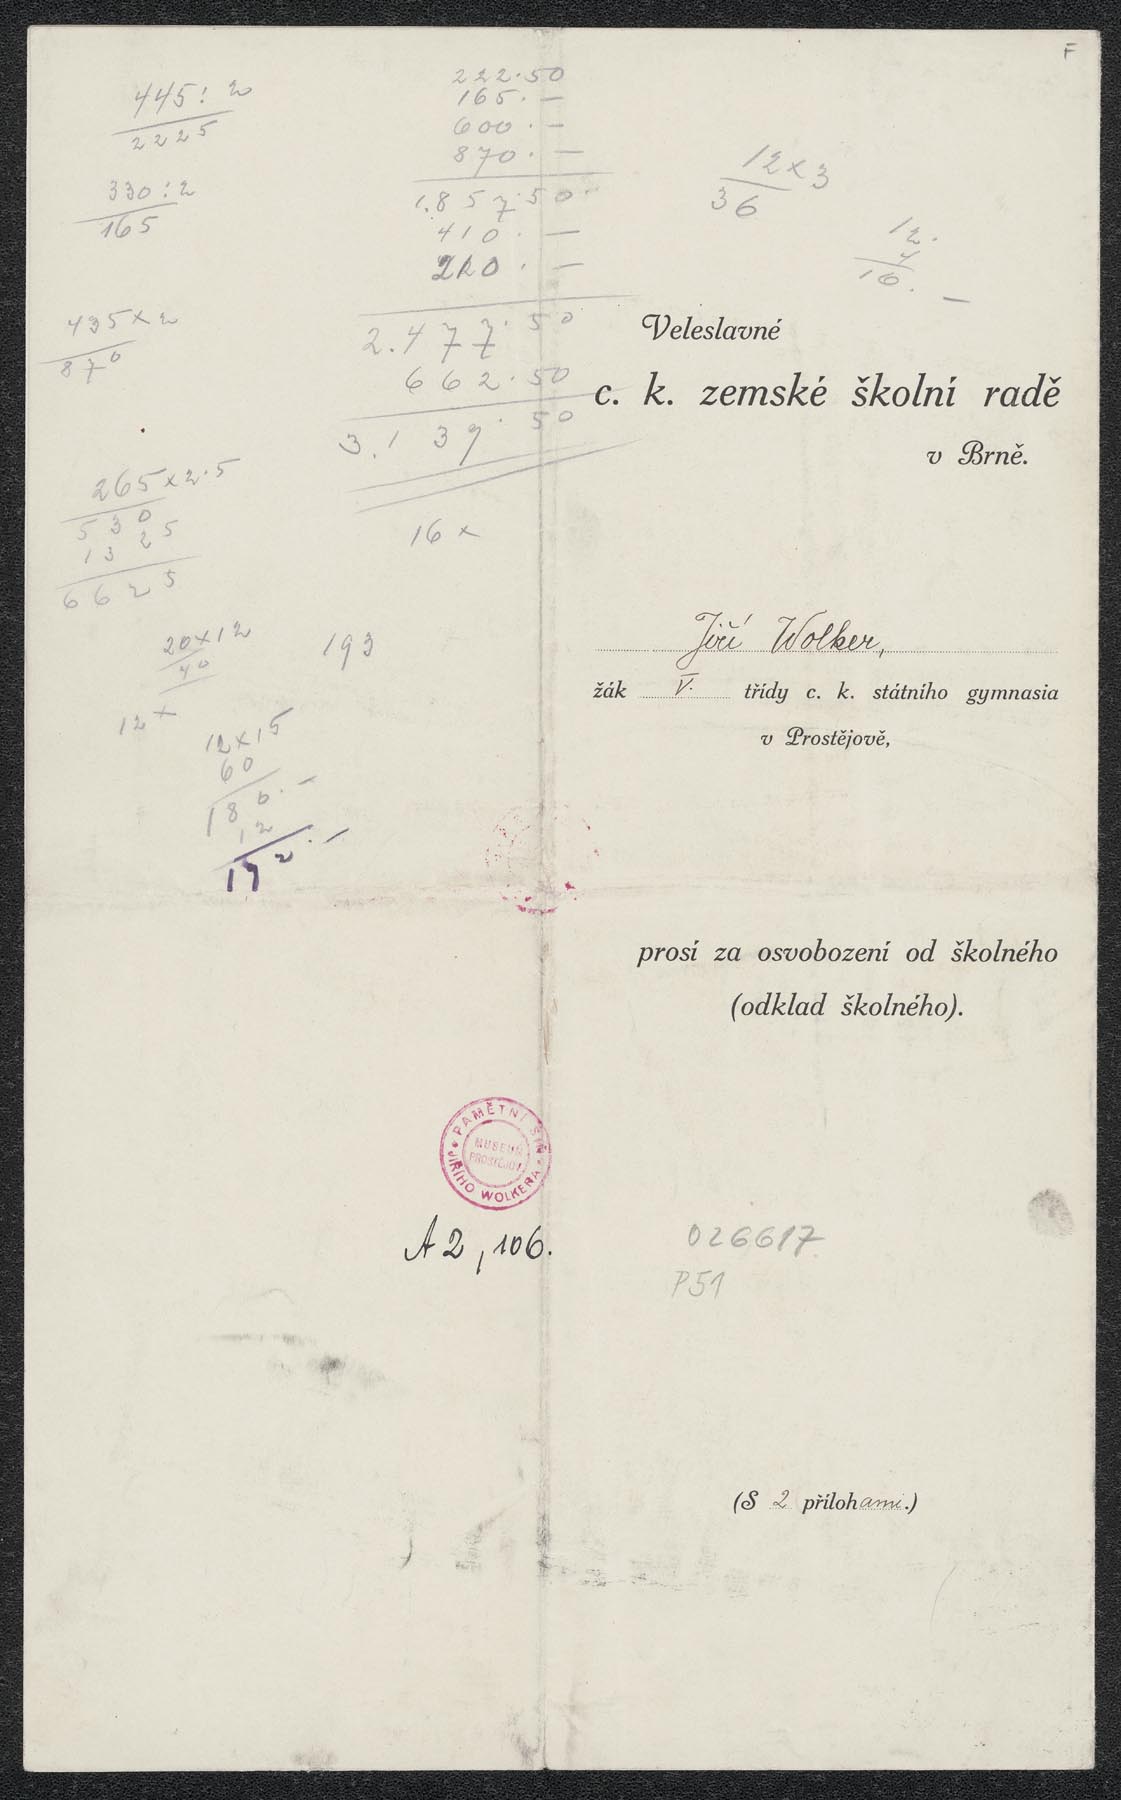 F
445 : 2
2225
330 : 2
165
435 x 2
870
265 x 2·5
530
1325
6625
20 x 12
40
12 x
193
12 x 15
60
180.–
12
192.–
222·50
165.–
600.–
870.–
1.857·50
410.–
210.–
2.477·50
662·50
3.139·50
16 x
12 x 3
36
12.
4
16.–
Veleslavné
c. k. zemské školní radě
v Brně.
Jiří Wolker,
žák V. třídy c. k. státního gymnasia
v Prostějově,
prosí za osvobození od školného
(odklad školného).
PAMĚTNÍ SÍŇ
JIŘÍHO WOLKERA
MUSEUM
PROSTĚJOV
A2, 106.
026617
P51
(S 2 přílohami.)